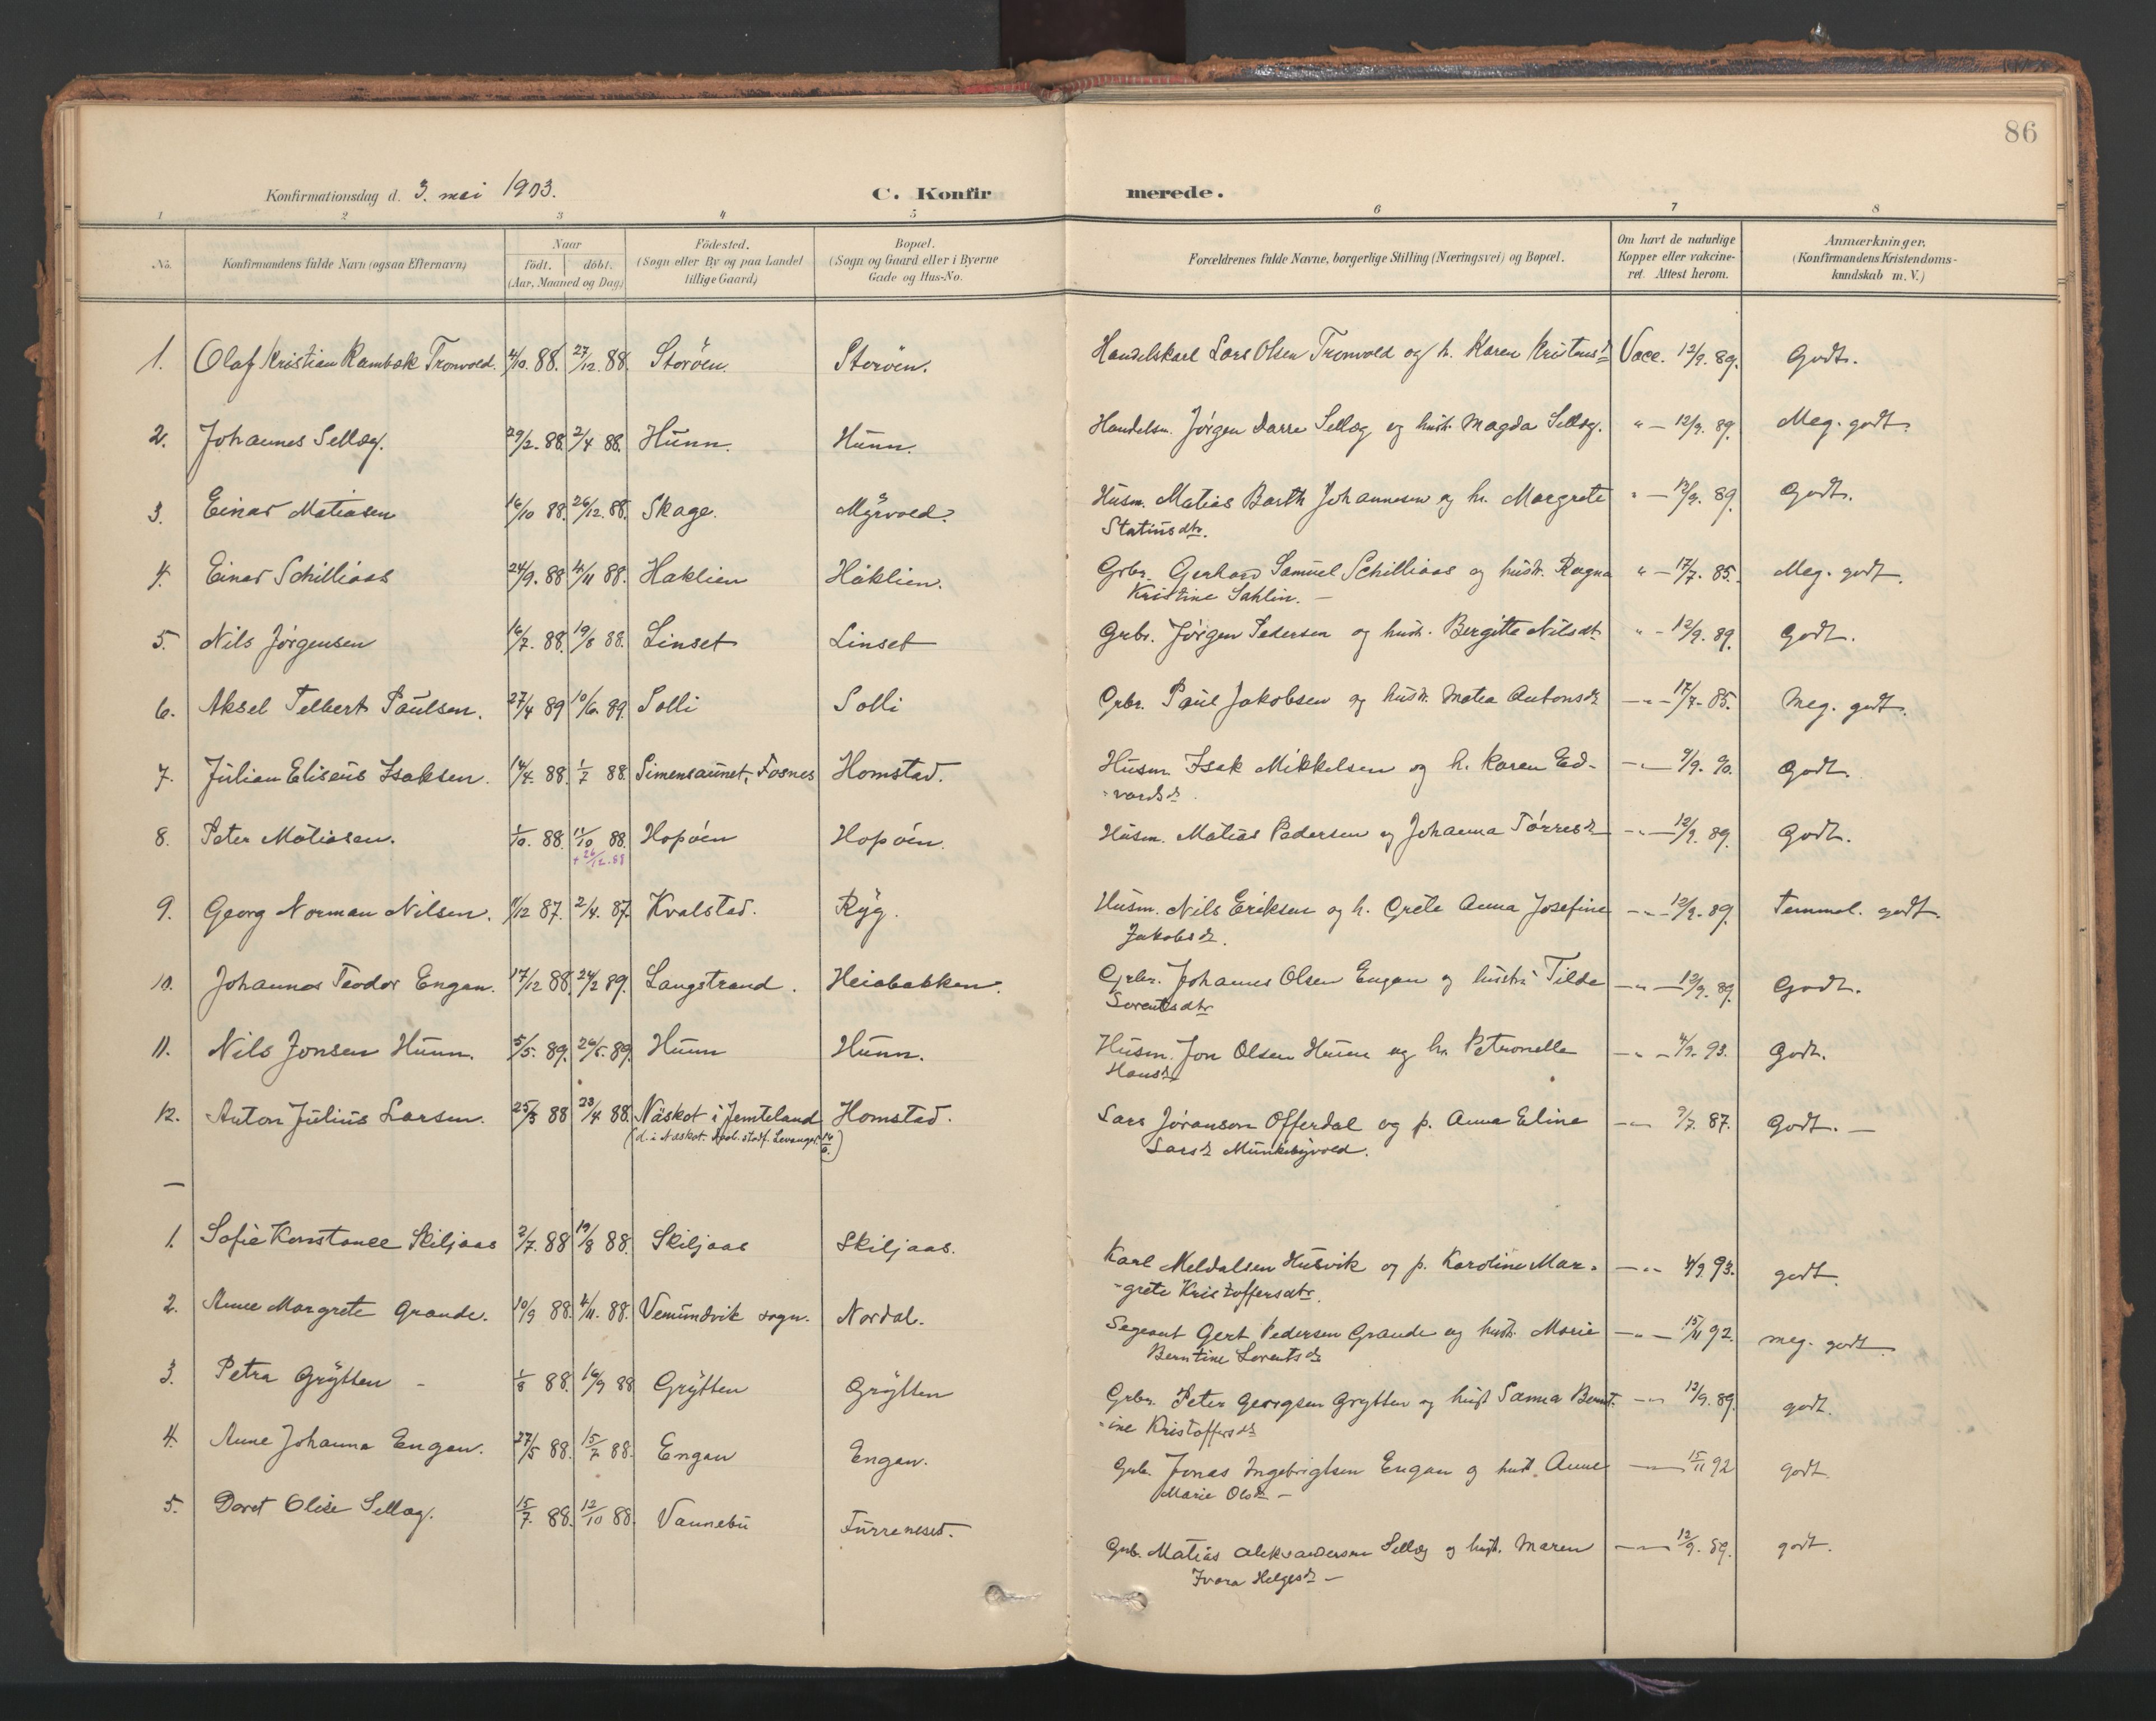 86
Konfirmationsdag d. 3. mai 1903. C. Konfirmerede.
1 2 3 4 5 6 7 8
No. Konfirmandens fulde Navn (ogsaa Efternavn) Naar födt. döbt. (Aar, Maaned og Dag) Födested. (Sogn eller By og paa Landet tillige Gaard) Bopæl. (Sogn og Gaard eller i Byerne Gade og Hus-No. Forældrenes fulde Navne, borgerlige Stilling (Næringsvei) og Bopæl. Om havt de naturlige Kopper eller vakcineret. Attest herom. Anmærkninger. (Konfirmandens Kristendomskundskab m. V.)
1. Olaf Kristian Rambæk Tronvold. 4/10. 88. 27/12. 88. Storöen. Storöen. Handelskarl Lars Olsen Tronvold og h. Karen Kristensd. Vacc. 12/9. 89. Godt.
2. Johannes Sellæg. 29/2. 88. 2/4 88. Hunn. Hunn. Handelsm. Jörgen Darre Sellæg og hustr. Magda Sellæg. " — 12/9. 89. Meg. godt.
3. Einar Matiasen 16/10 88. 26/12. 88. Skage. Myrvold. Husm. Matias Barth Johannesen og h. Margrete " — 12/9. 89. Godt.
Statiusdtr.
4. Einar Schilliaas 24/9. 88 4/11 88. Haklien Haklien. Grbr. Gerhard Samuel Schilliaas og hustr. Ragna " — 17/7. 85. Meg. godt.
Kristine Sahlin. —
5. Nils Jörgensen 16/7. 88. 19/8 88. Linset Linset Grbr. Jörgen Pedersen og hustr. Bergitte Nilsdt. " — 12/9. 89. Godt.
6. Aksel Telbert Paulsen. 27/4 89 10/6. 89. Solli Solli Grbr. Paul Jakobsen og hustr. Matea Antonsd. — " — 17/7. 85. Meg. godt.
7. Julian Eliseus Isaksen. 14/4. 88. 1/7 88. Simensaunet, Fosnes Homstad. Husm. Isak Mikkelsen og h. Karen Ed- — " — 9/9. 90. Godt.
vardsd.
8. Peter Matiasen. 1/10. 88. 11/10 88. Hopöen Hopöen. Husm. Matias Pedersen og Johanna Törresd. — " — 12/9. 89. Godt.
+ 26/12. 88
9. Georg Norman Nilsen. 11/12 87. 2/4. 87. Kvalstad. Ryg. Husm. Nils Eriksen og h. Grete Anna Josefine — " — 12/9. 89. Temmel. godt.
Jakobsd.
10. Johannes Teodor Engan. 17/12 88. 24/2 89. Langstrand. Heiabakken. Grbr. Johannes Olsen Engan og hustru Tilde — " — 12/9. 89. Godt.
Sorentsdtr
11. Nils Jonsen Hunn. 5/5. 89. 26/5. 89. Hunn Hunn. Husm. Jon Olsen Hunn og h. Petronelle — " — 4/9. 93. Godt.
Hansd.
12. Anton Julius Larsen. 25/3 88 23/4 88. Näskot i Jemteland Homstad. Lars Jöranson Offerdal og p. Anna Eline — " — 9/7. 87. Godt. —
(d. i Näskot. stadf. Levanger 14/6.) Larsd. Munkebyvold.
—
1. Sofie Konstance Skiljaas 2/7. 88 19/8 88. Skiljaas Skiljaas. Karl Meldalsen Husvik og p. Karoline Mar- — " — 4/9 93. godt.
grete Kristoffersdtr.
2. Anne Margrete Grande. 10/9 88. 4/11. 88. Vemundvik sogn. Nordal. Segeant Gert Pedersen Grande og hustr. Marie — " — 15/11 92. meg. godt.
Berntine Lorentsd.
3. Petra Grytten — 1/8 88. 16/9 88 Grytten Grytten Grbr. Peter Georgsen Grytten og hust Sanna Bernt- — " — 12/9. 89. godt.
ine Kristoffersd.
4. Anne Johanna Engan. 27/5 88. 15/7 88. Engan Engan. Grb. Jonas Ingebrigtsen Engan og hust. Anne — " — 15/11 92 godt.
Marie Olsd. —
5. Doret Olise Sellæg. 15/7. 88. 12/10 88. Vannebu Furreneset. Grb. Matias Aleksandersen Sellæg og hust. Maren — " — 12/9. 89. godt.
Ivara Helgesd. —